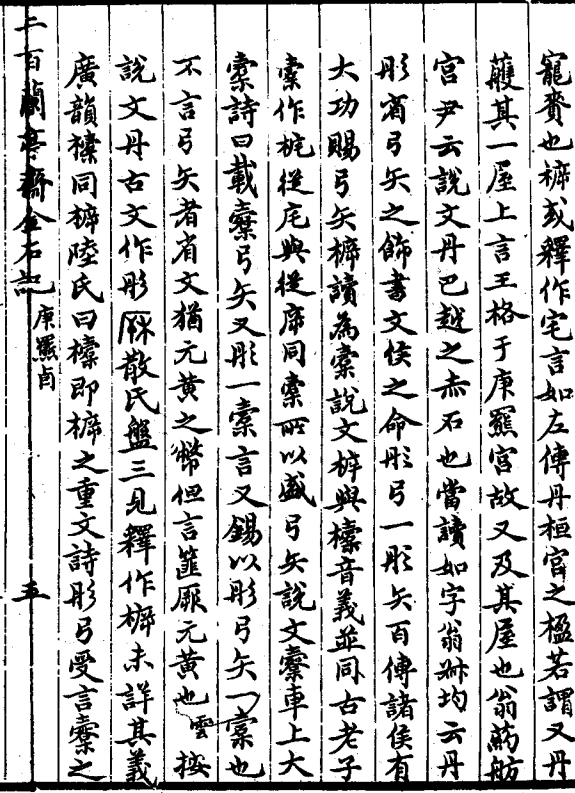 寵賚也㭙或釋作宅言如左傳丹桓宮之楹若謂又丹
雘其一屋上言王格于庚羆宮故又及其屋也翁蒻舫
宮尹云說文丹巴越之赤石也當讀如字翁叔均云丹
彤省弓矢之飾書文侯之命彤弓一彤矢百傳諸侯有
大功賜弓矢㭙讀為櫜說文㭙與橐音義並同古老子
橐作㡯從㡯與從㡿同櫜所以盛弓矢說文櫜車上大
橐詩曰載櫜弓矢又彤一櫜言又錫以彤弓矢一櫜也
不言弓矢者省文猶元黃之幣但言篚厥元黃也雲按
說文丹古文作彤散氏盤三見釋作㭙未詳其義
廣韻㯱同㭙陸氏曰㯱即㭙之重文詩彤弓受言櫜之
二百蘭亭齋金石記 庚羆卣 五